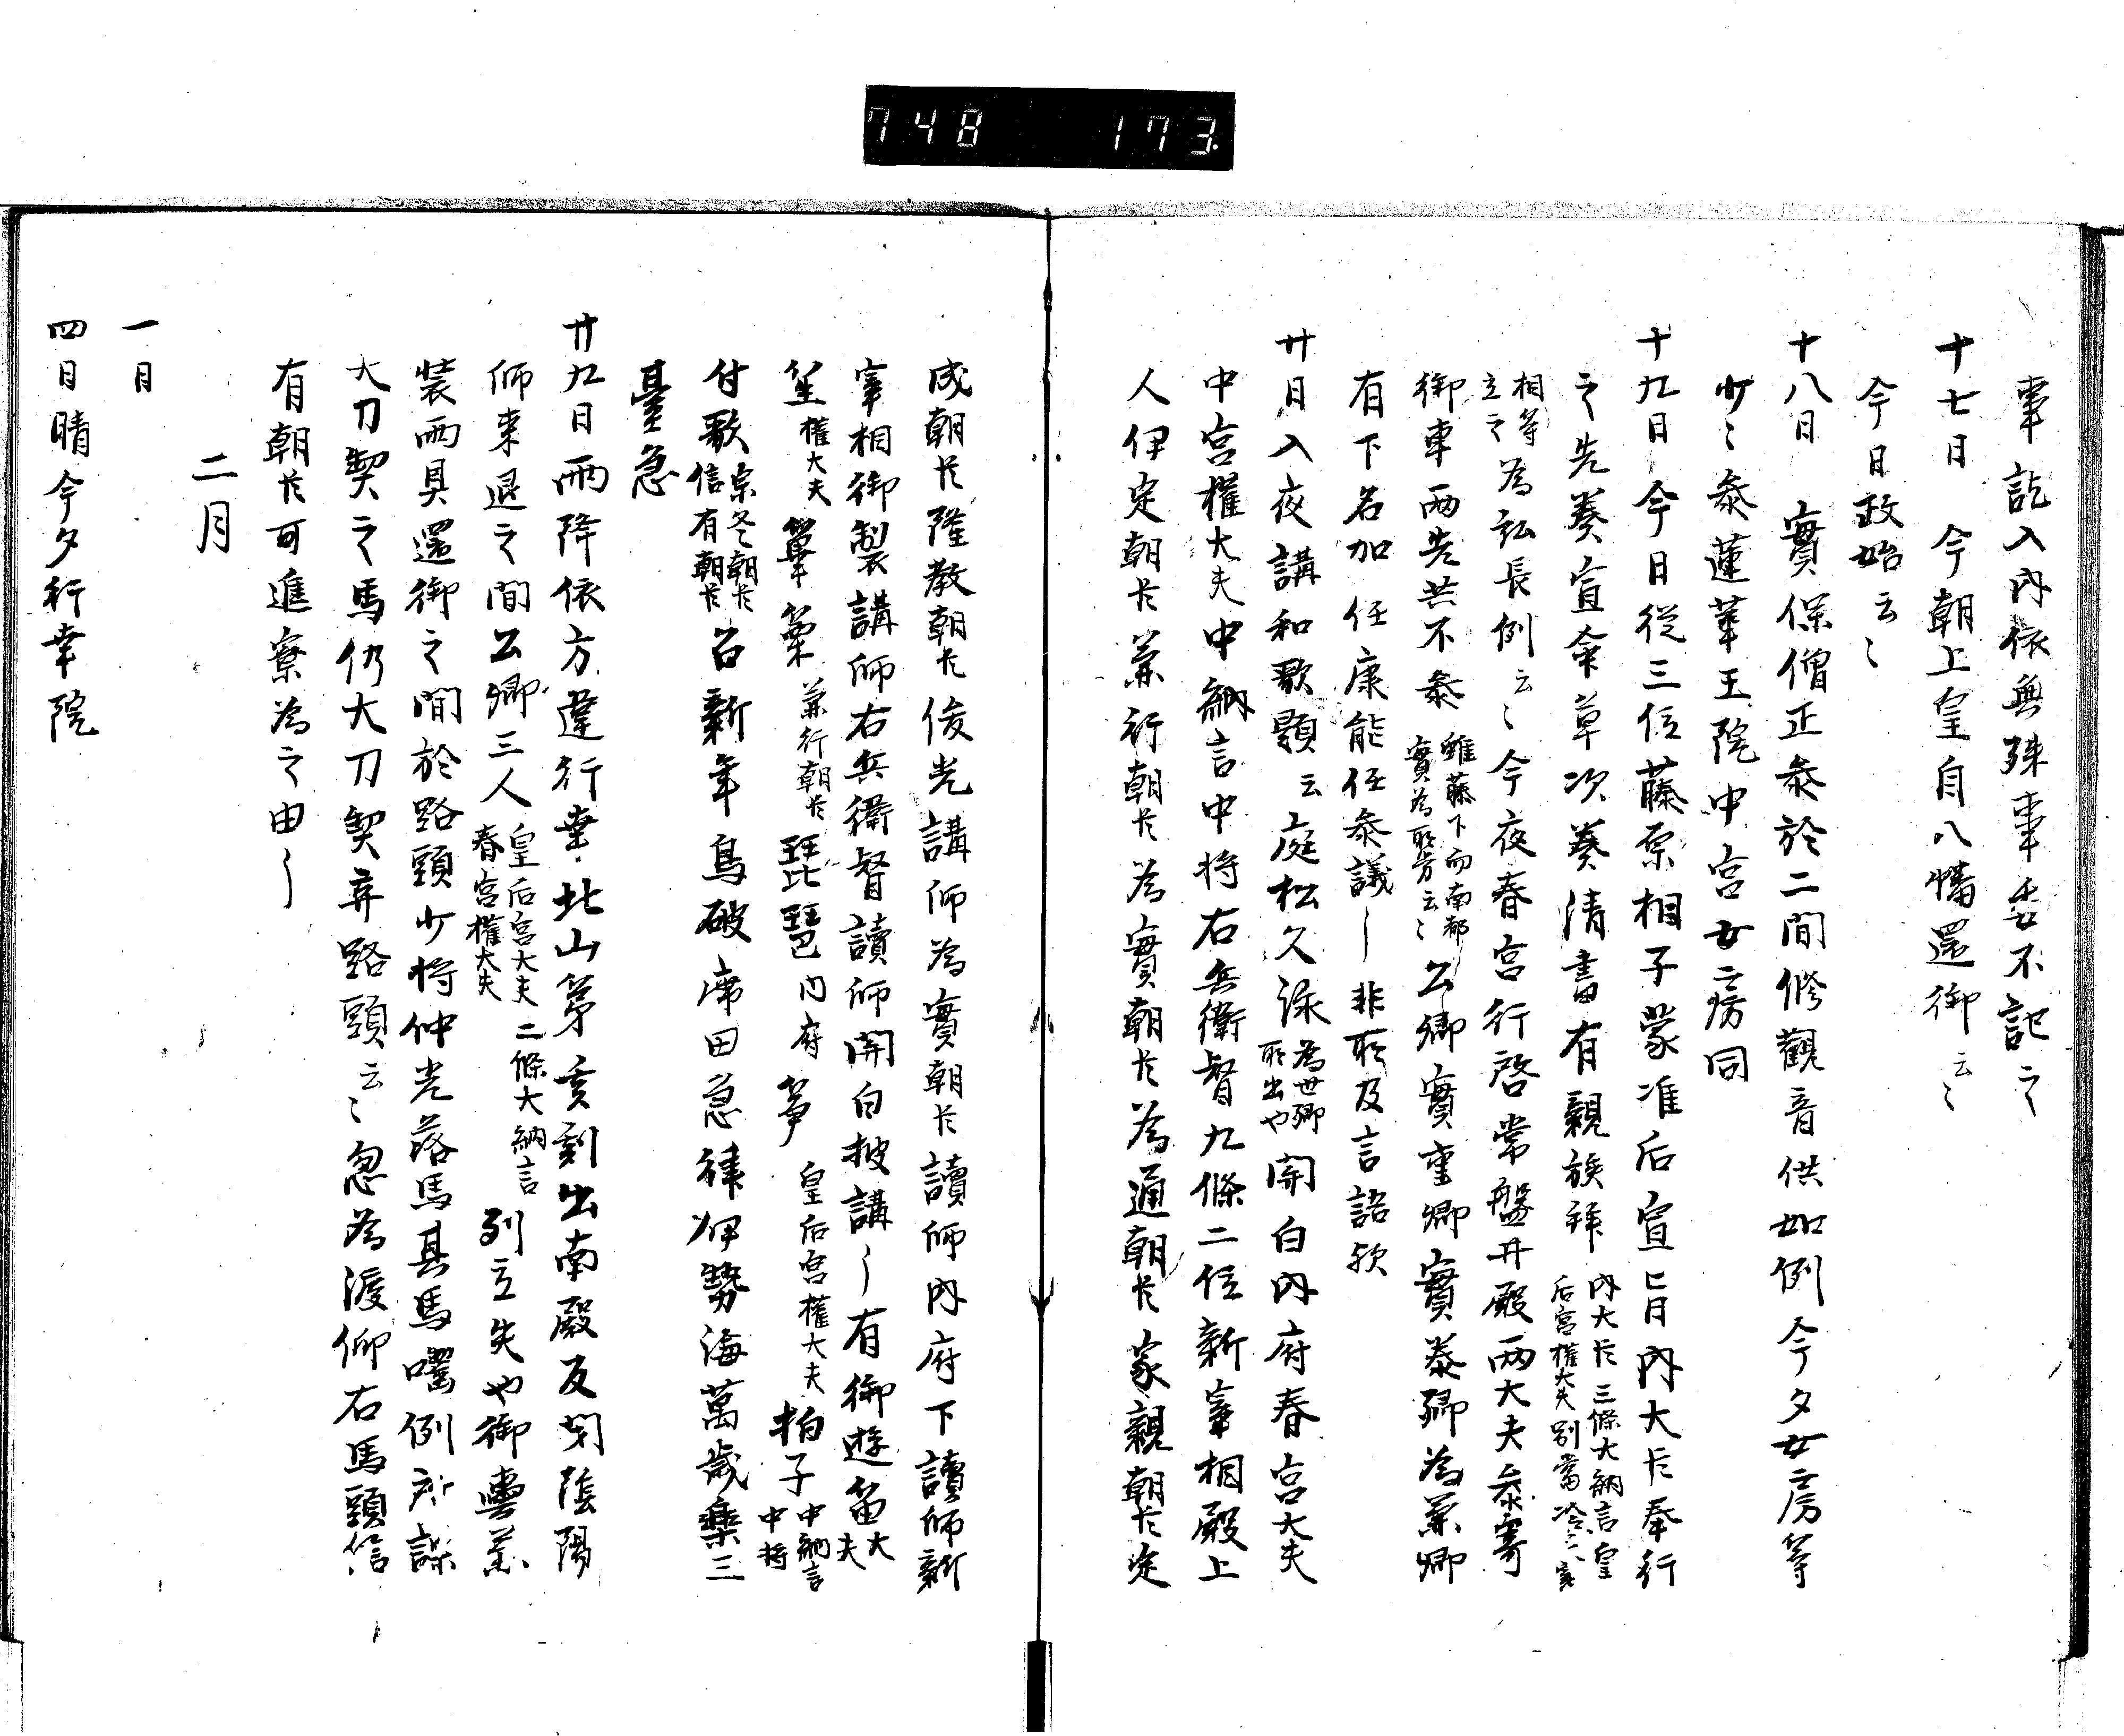 748 173
事訖入内依無殊事委不記之
十七日 今朝上皇自八幡還御云々
今日政始云々
十八日 實保僧正参於二間修觀音供如例今夕女房等
少々参蓮華王院中宮女房同
十九日今日從三位藤原相子蒙准后宣旨内大臣奉行
之先奏宣命草次奏清書有親族拝 内大臣 三條大納言 皇
后宮權大夫 別當 冷泉宰
相等
立之 為弘長例云々今夜春宮行啓常盤井殿両大夫参寄
御車両先共不参 雖藤下向南都
實為所労云々 公卿實重卿實泰卿為兼卿
有下名加任康能任参議〳〵非所及言語歟
廿日入夜講和歌題云庭松久深 為世卿
所出也 関白内府春宮大夫
中宮權大夫中納言中将右兵衛督九條二位新宰相殿上
人伊定朝臣兼行朝臣為實朝臣為通朝臣家親朝臣定
成朝臣隆教朝臣俊光講師為實朝臣讀師内府下讀師新
宰相御製講師右兵衛督讀師関白披講〳〵有御遊笛 大
夫
笙 權大夫 篳篥 兼行朝臣 琵琶 内府 筝 皇后宮權大夫 拍子 中納言
中将
付歌 宗冬朝臣
信有朝臣 呂新年鳥破席田急律伊勢海萬歳樂三
臺急
廿九日雨降依方違行幸北山第亥刻出南殿反閇陰陽
師来退之間公卿三人 皇后宮大夫 二條大納言
春宮權大夫 列立失也御輿兼
装雨具還御之間於路頭少将仲光落馬其馬嚙例所謀
大刀契之馬仍大刀契弃路頭云々忽為渡仰右馬頭信
有朝臣可進寮為之由〳〵
二月
一日
四日晴今夕行幸院